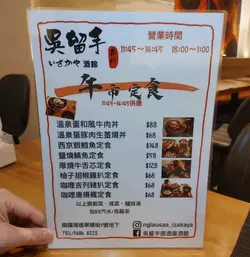 吳留手
いざかや 酒館
營業時間
11:45~14:45 18:00~1:00
午市定食
11:45-14:45供應
溫泉蛋和風牛肉丼 $88
溫泉蛋豚肉生薑燒丼 $68
西京銀鱈魚定食 $138
鹽燒鯖魚定食 $68
厚燒牛舌芯定食 $128
柚子胡椒雞扒定食 $68
咖喱吉列豬扒定食 $68
咖喱唐揚雞定食 $68
nglausau_izakaya
吳留手居酒屋酒館